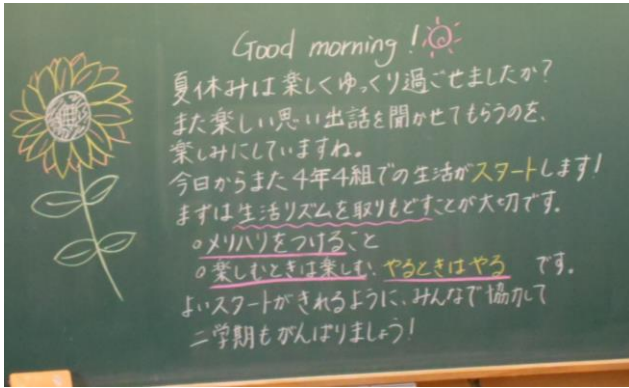 Good morning!
夏休みは楽しくゆっくり過ごせましたか?
また楽しい思い出話を聞かせてもらうのを、
楽しみにしていますね。
今日からまた4年4組での生活がスタートします!
まずは生活リズムを取りもどすことが大切です。
○メリハリをつけること
○楽しむときは楽しむ、やるときはやる です。
よいスタートがきれるように、みんなで協力して
二学期もがんばりましょう!